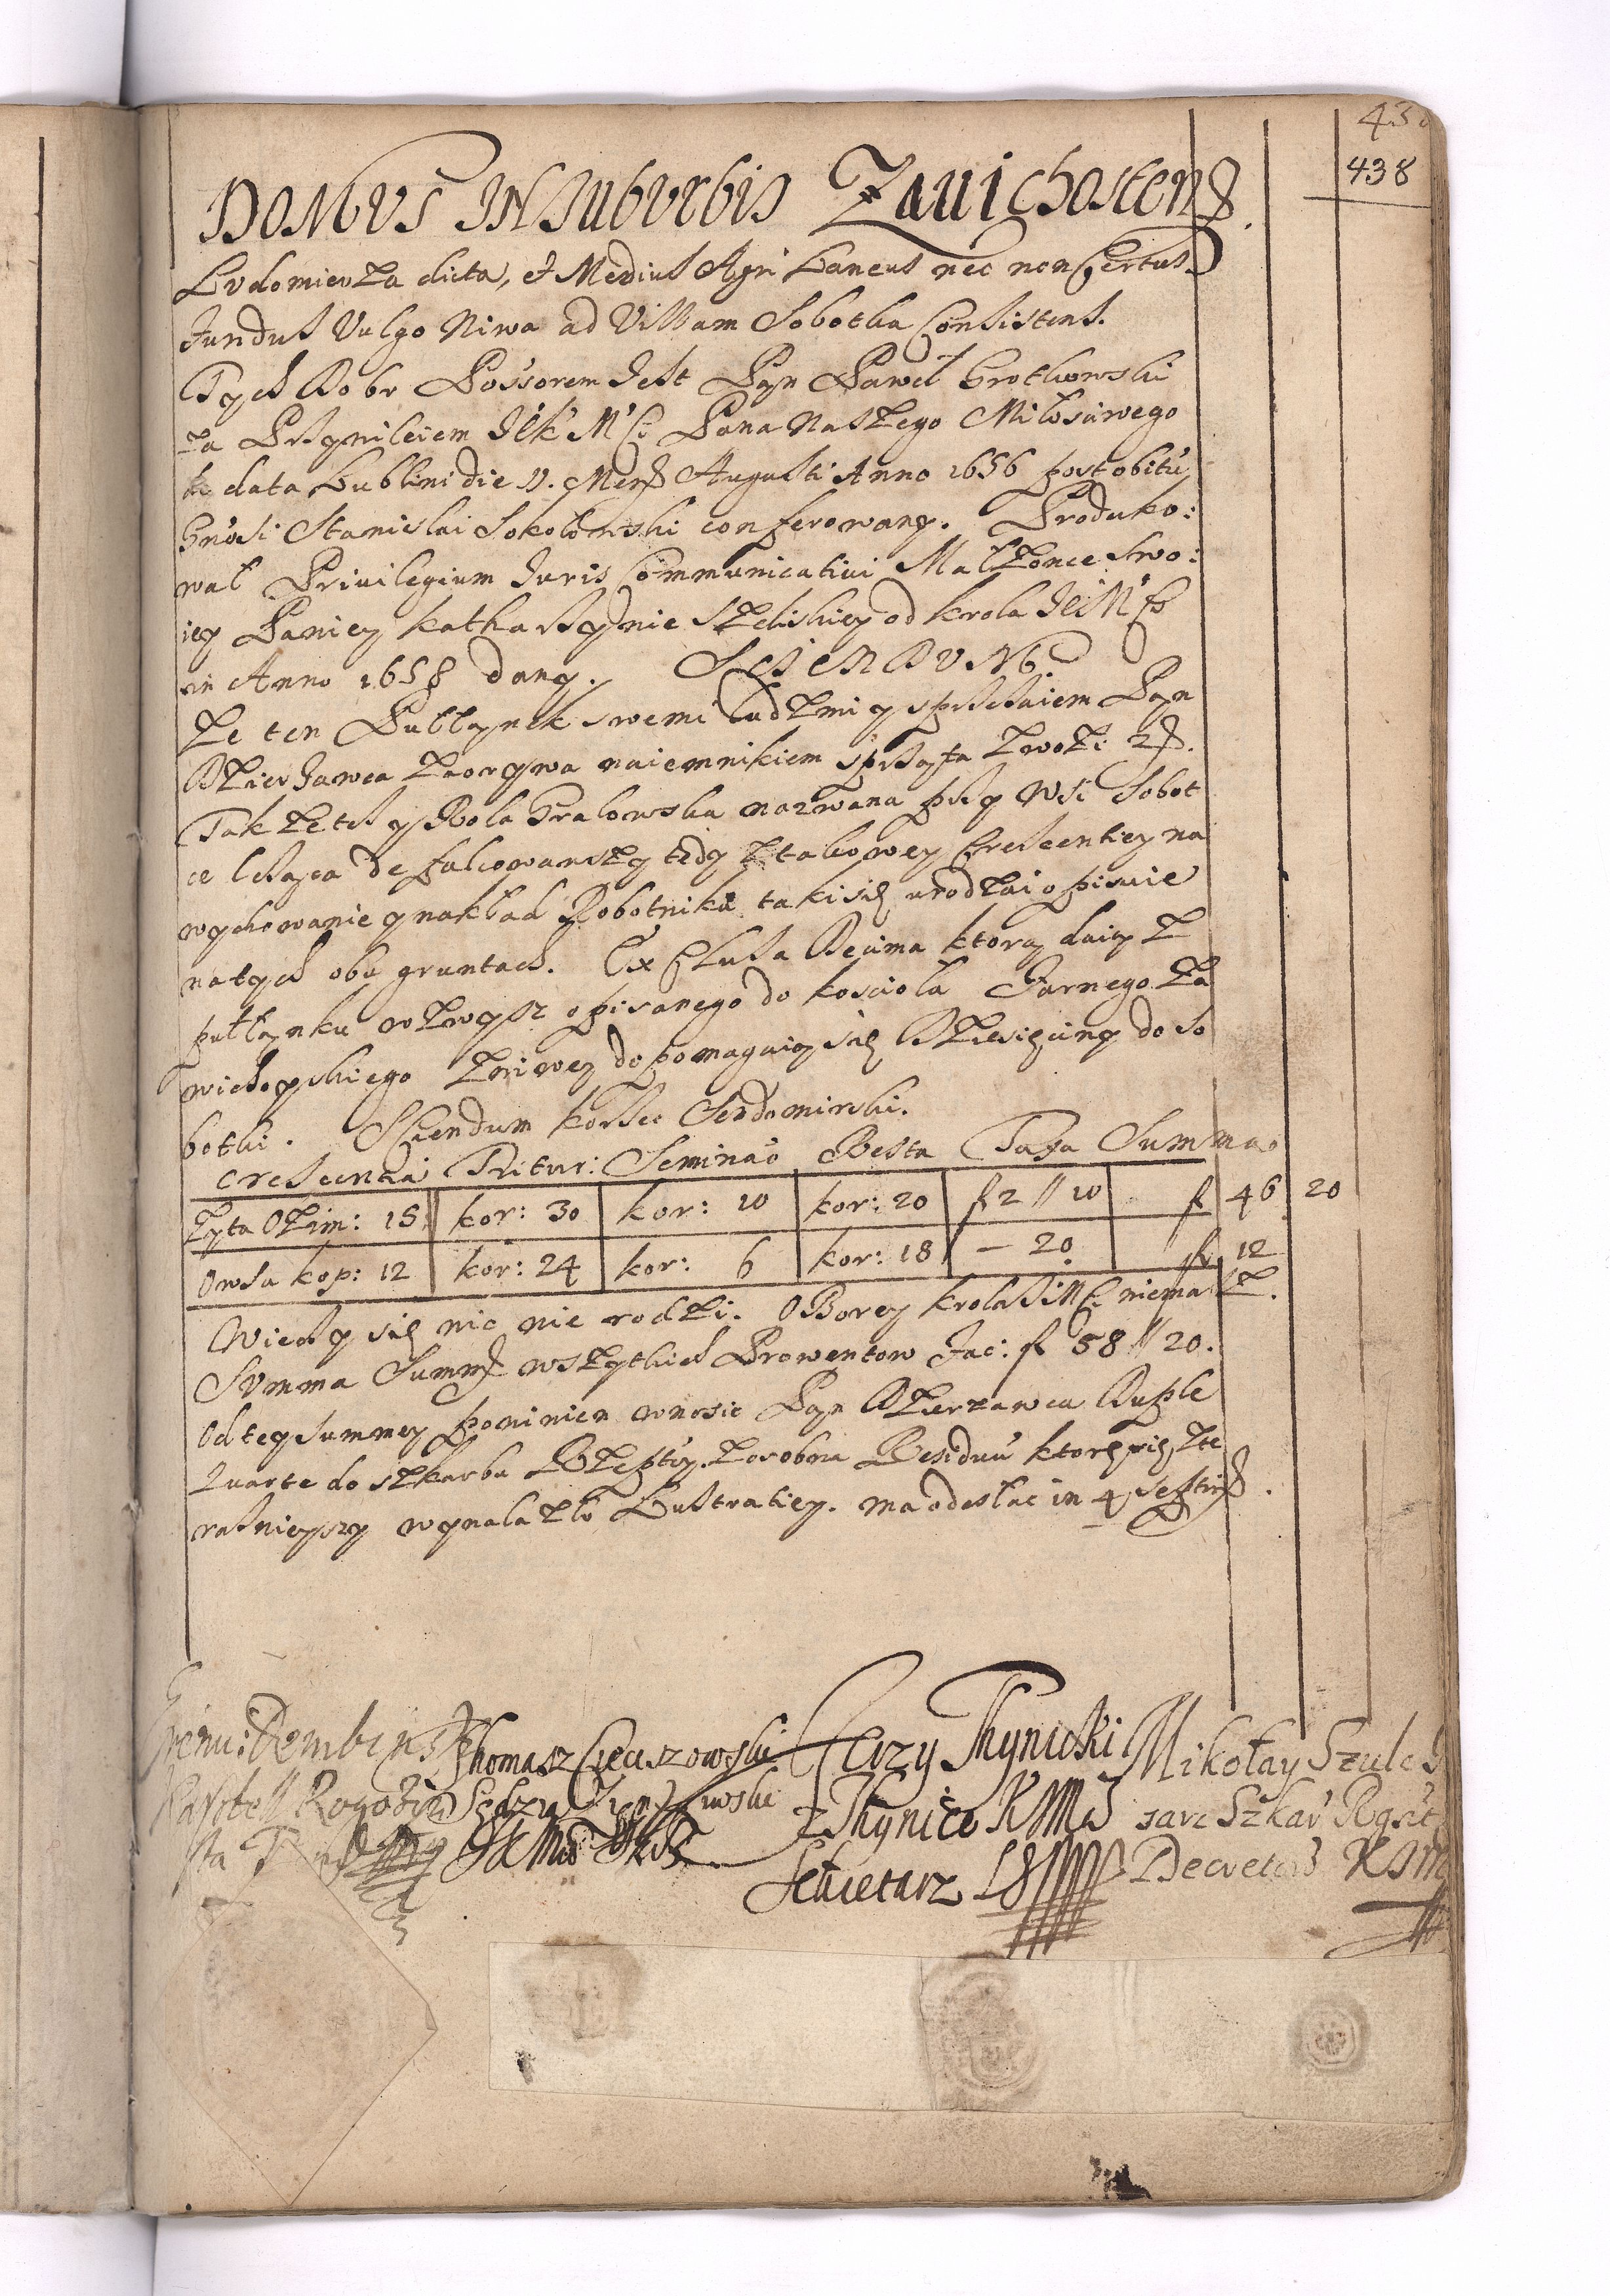 438
Domus in suburbio Zavichosten:
Ludomierza dicta, et Medius Agri Laneus nec non certus
fundus vulgo Niwa ad Villam Sobotka consistens.
Tych Dobr Possorem Jest Pan Paweł Grotkowski
za Przywileiem JeK Mci Pana Naszego Miłosciwego
de data Lublini die 11. Mens Augusti Anno 1656 post obitu
Gnosi Stanislai Sokołowski conferowany. Produko:
wał Privilegium Juris Communicativi Małzonce swo:
iey Paniey Katharzynie od krola JeMCi
in Anno 1658 dany. Sciendum
Ze ten Pułłanek swemi ludzmi y sprzezaiem Pan
Dzierzawca zaorywa naiemnikiem sprząta zwozi
Takze tesz y Rola Gralowska nazwana przy Wsi Sobot
ce lezaca defalcowawszy tedy z takowey Crescentiey na
wychowanie y nakład Robotnika taki się urodzai opisuie
na tych obu gruntach. Excepta Decima ktorą daią z
pułłanku wzwysz opisanego do koscioła Farnego Za
wichoyskiego z niwey dopomagaią się Dziesięciny do So
botki. Sciendum korzec Sendomirski.
Crescentia Tritur: Seminaõ Resta Taxa Summa
Zyta Ozim: 15 kor: 30 kor: 10 kor: 20 f 2 // 10 f 46 20
Owsa kop: 12 kor: 24 kor: 6 kor: 18 – 20 f 12
Więcy się nic nie rodzi. Oborey krola JMCi niemasz.
Summa Summ wszytkich Prowentow Fac: f 58 // 20.
Od tey summey powinien wnosic Pan Dzierzawca Duple
Quarte do szkarbu Rzeptey. Zosobna Residuu ktore się z te
raznieyszy wynalazło Lustratiey. ma odesłac in 4 Septim
Thomasz Cieciszowski Jerzy Thynicki Mikołay Szulc
Kaszte Rogozin Sędzia z Thynice KMS sarz Szkar
Secretarz Decretow KJM